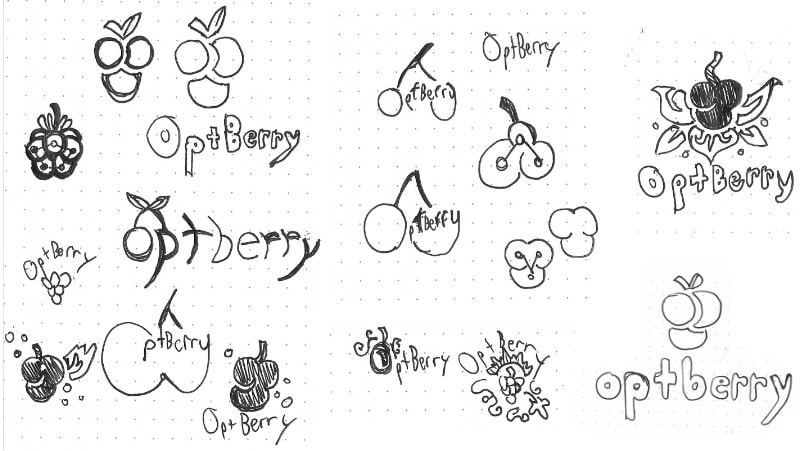 OptBerry
optberry
OptBerry
ptBerry
OptBerry
OptBerry
optBerry
ptBerry
optBerry
OptBerry
OptBerry
optberry